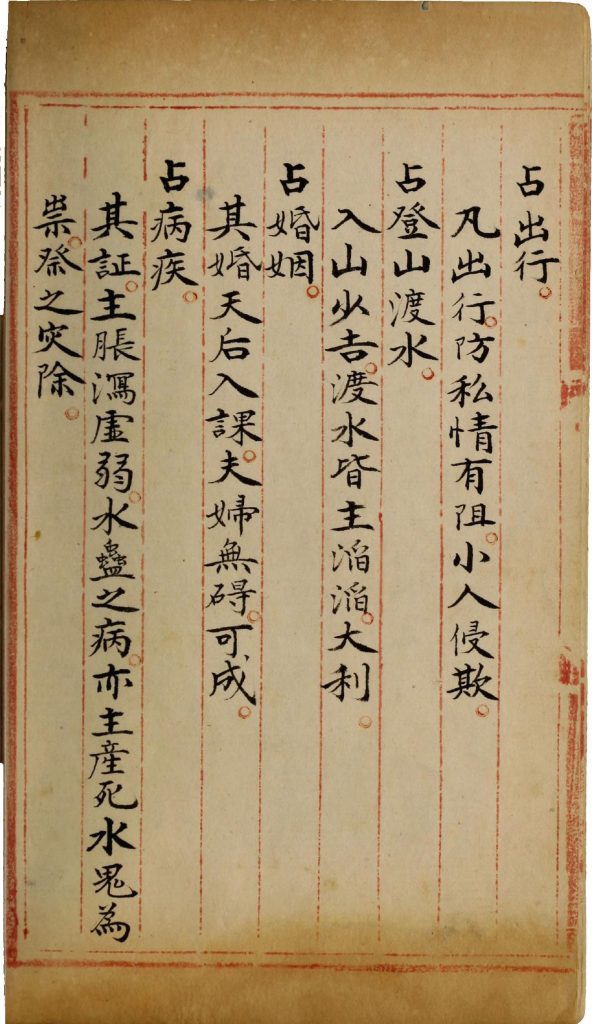 占出行。
凡出行。防私情有阻。小人侵欺。
占登山渡水。
入山必吉。渡水皆主滔滔。大利。
占婚姻。
其婚天后入課。夫婦無碍。可成。
占病疾。
其証。主脹瀉虛弱。水蠱之病。亦主產死水鬼為
祟。祭之灾除。